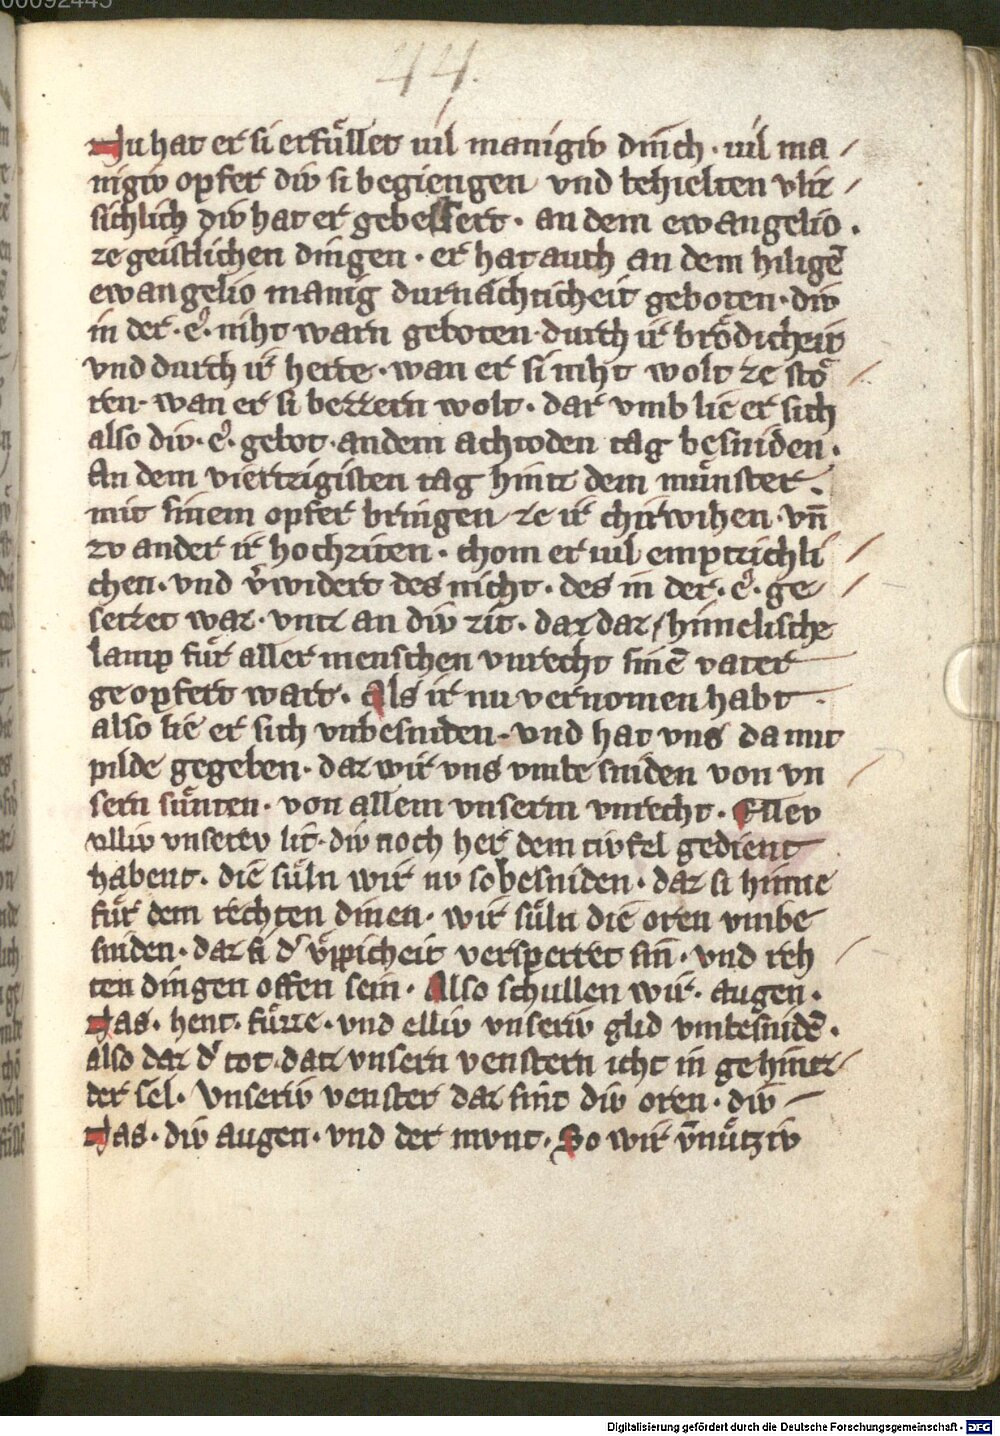 44.
Nu hat er si erfuͤllet uil manigiv dinch · uil ma
nigiv opfer div si begiengen vnd behielten vliz
sichlich div hat er gebessert · an dem ewangelio ·
ze geistlichen dingen · er hat auch an dem hiligē
ewangelio manig durnachticheit geboten · div
in der · e · niht warn geboten · durch ir broͤdicheit
vnd durch ir herte · wan er si niht wolt ze stoͤ
ren · wan er si bezzern wolt · dar vmb lie er sich
also div · e · gebot · an dem achtoden tag besniden ·
An dem viertzigisten tag hintz dem muͤnster ·
mit sinem opfer bringen ze ir chirwihen · vn̄
zv ander ir hochziten · chom er uil emptzichli
chen · vnd v̄widert des nicht · des in der · e · ge
setzet war · vntz an div zit · daz daz himelische
lamp fuͤr aller menschen vnrecht sinē vater
geopfert wart · Als ir nu vernomen habt ·
also lie er sich vnbesniden · vnd hat vns da mit
pilde gegeben · daz wir vns vmbe sniden von vn
sern suͤnten · von allem vnserm vnrecht · Ellev
vnserev lit · div noch her dem tivfel gedient
habent · die suͤln wir nv so besniden · daz si hinne
fuͤr dem rechten dinen · wir suͤln die oren vmbe
sniden · daz si d͛ vͤppicheit versperret sin · vnd reh
ten dingen offen sein · Also schullen wir · augen ·
Nas · hent · fuͤzze · vnd elliv vnseriv glid vmbesnidē ·
also daz d͛ tot · datz vnsern venstern icht in ge hintz
der sel · Vnseriv venster daz sint div oren · div
Nas · div augen · vnd der mvnt · So wir v̄nuͤtziv
Digitalisierung gefördert durch die Deutsche Forschungsgemeinschaft - DFG